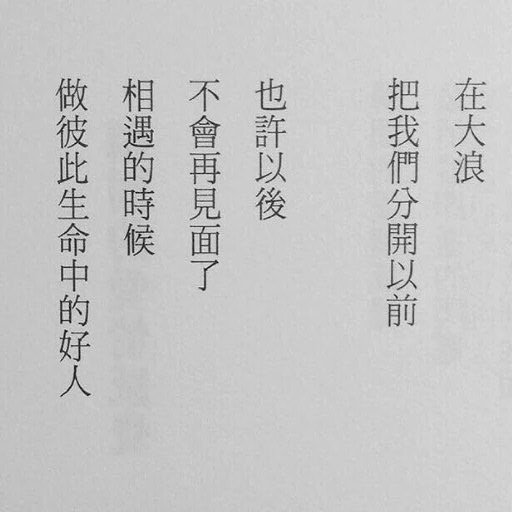 在大浪
把我們分開以前
也許以後
不會再見面了
相遇的時候
做彼此生命中的好人